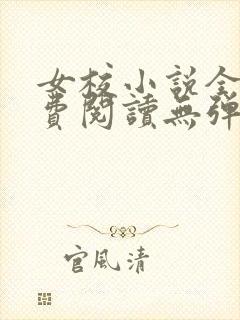 女校小說全
費閱讀無彈
官風清